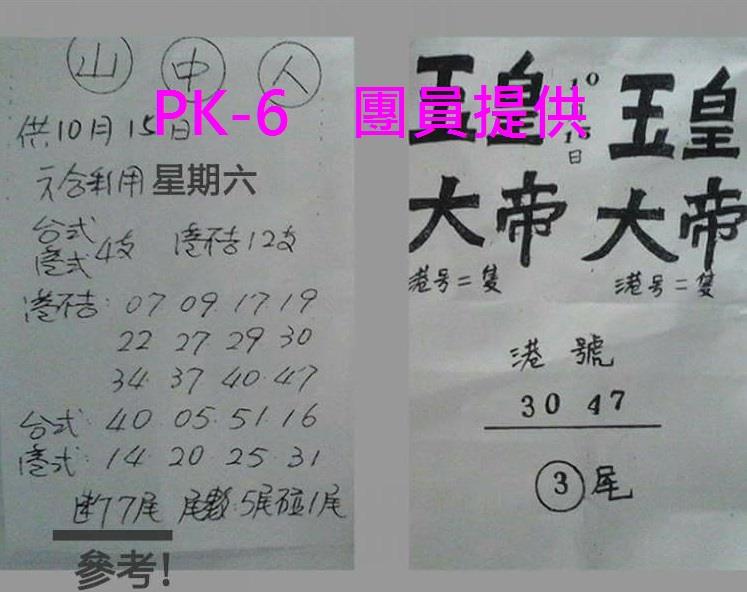 山 中 人
PK-6 團員提供
供10月15日
六合利用 星期六
台式
港式 4支 港不吉12支
港不吉: 07 09. 17. 19
22 27 29 30
34. 37 40. 47
台式: 40 05. 51. 16
港式: 14 20 25. 31
77尾 尾數:5尾碰1尾
參考!
玉皇 10月15日 玉皇
大帝 大帝
港号二隻 港号二隻
港號
30 47
③尾